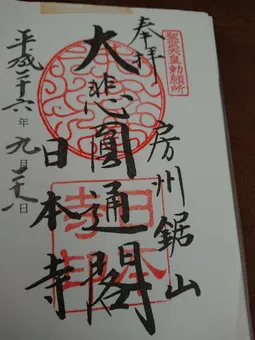 聖武天皇勅願所
奉拝
房州鋸山
大悲圓通閣
日本寺
平成二十六年九月 日